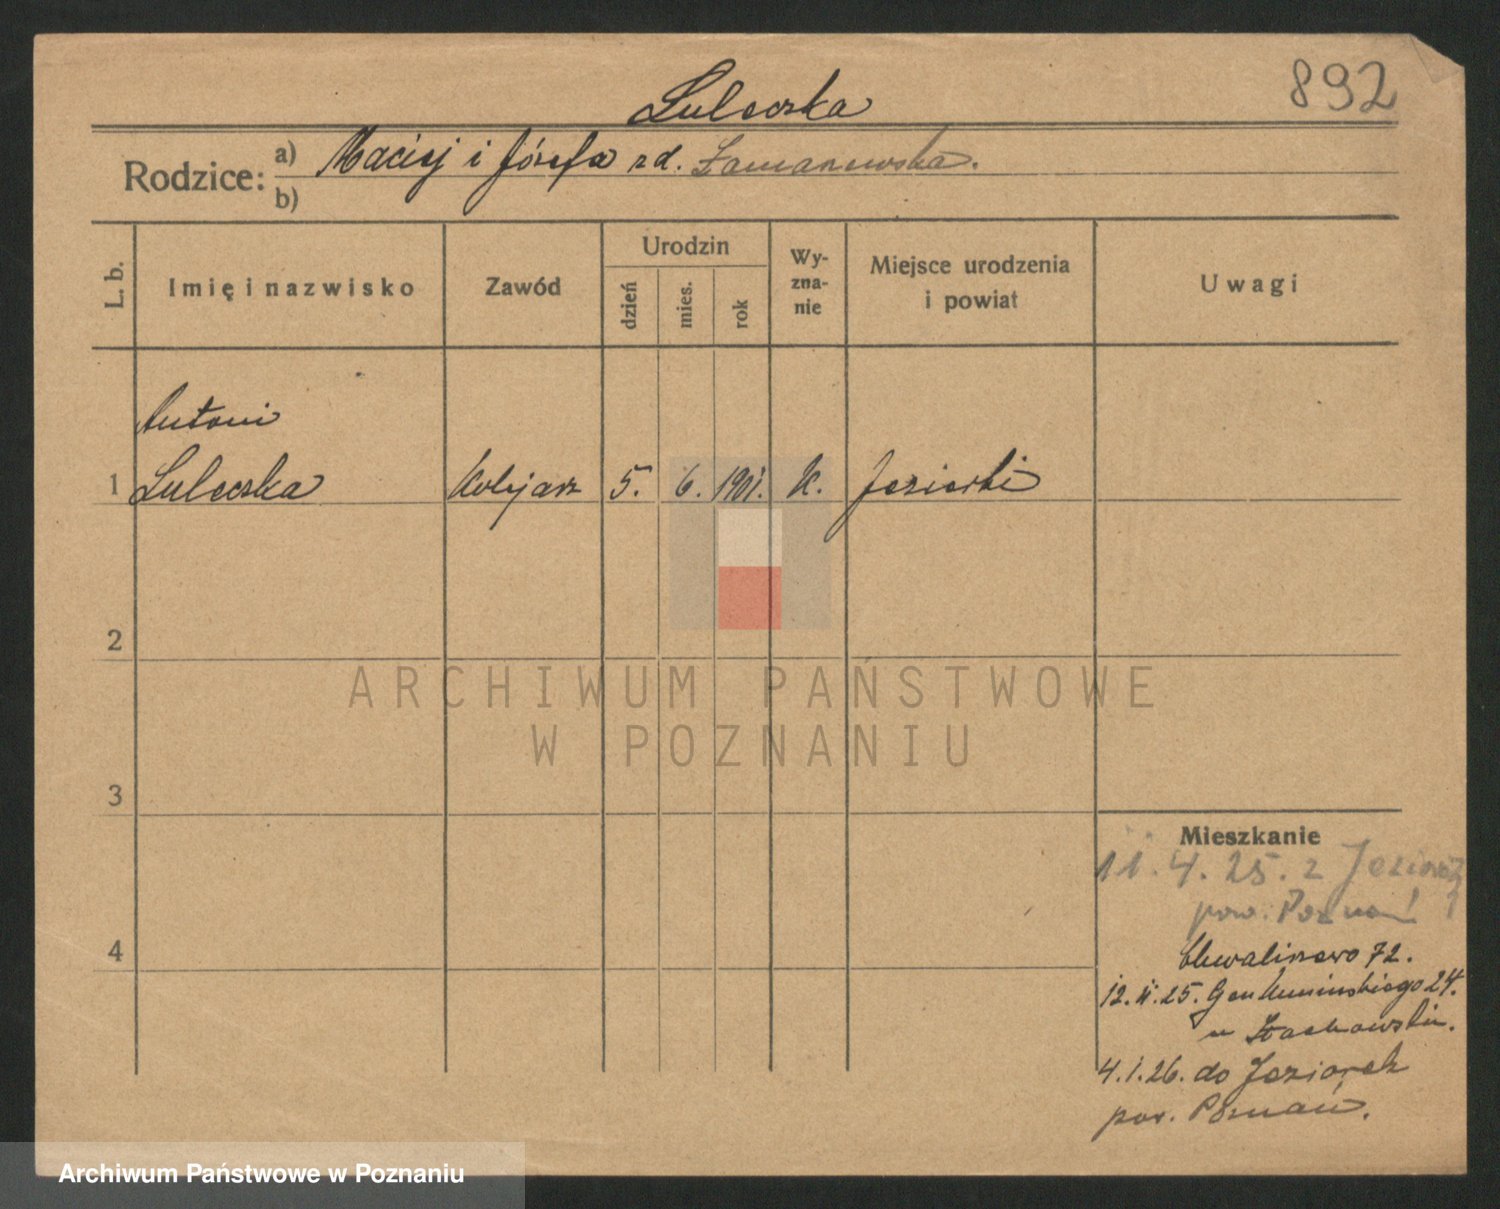 892
Luleczka
Rodzice: a) Maciej i Józefa z d.
b)
L. b. Imię i nazwisko Zawód Urodzin dzień mies. rok Wyzna-nie Miejsce urodzenia i powiat Uwagi
Antoni
1 Luleczka Kolejarz 5. 6. 1901. K. Jeziorki
2
ARCHIWUM PAŃSTWOWE
W POZNANIU
3
Mieszkanie
11. 4. 25. z
pow. Poznań
4
72.
12. 25. Gen 24.
u
4. 1. 26. do Jeziorek
pow. Poznań.
Archiwum Państwowe w Poznaniu